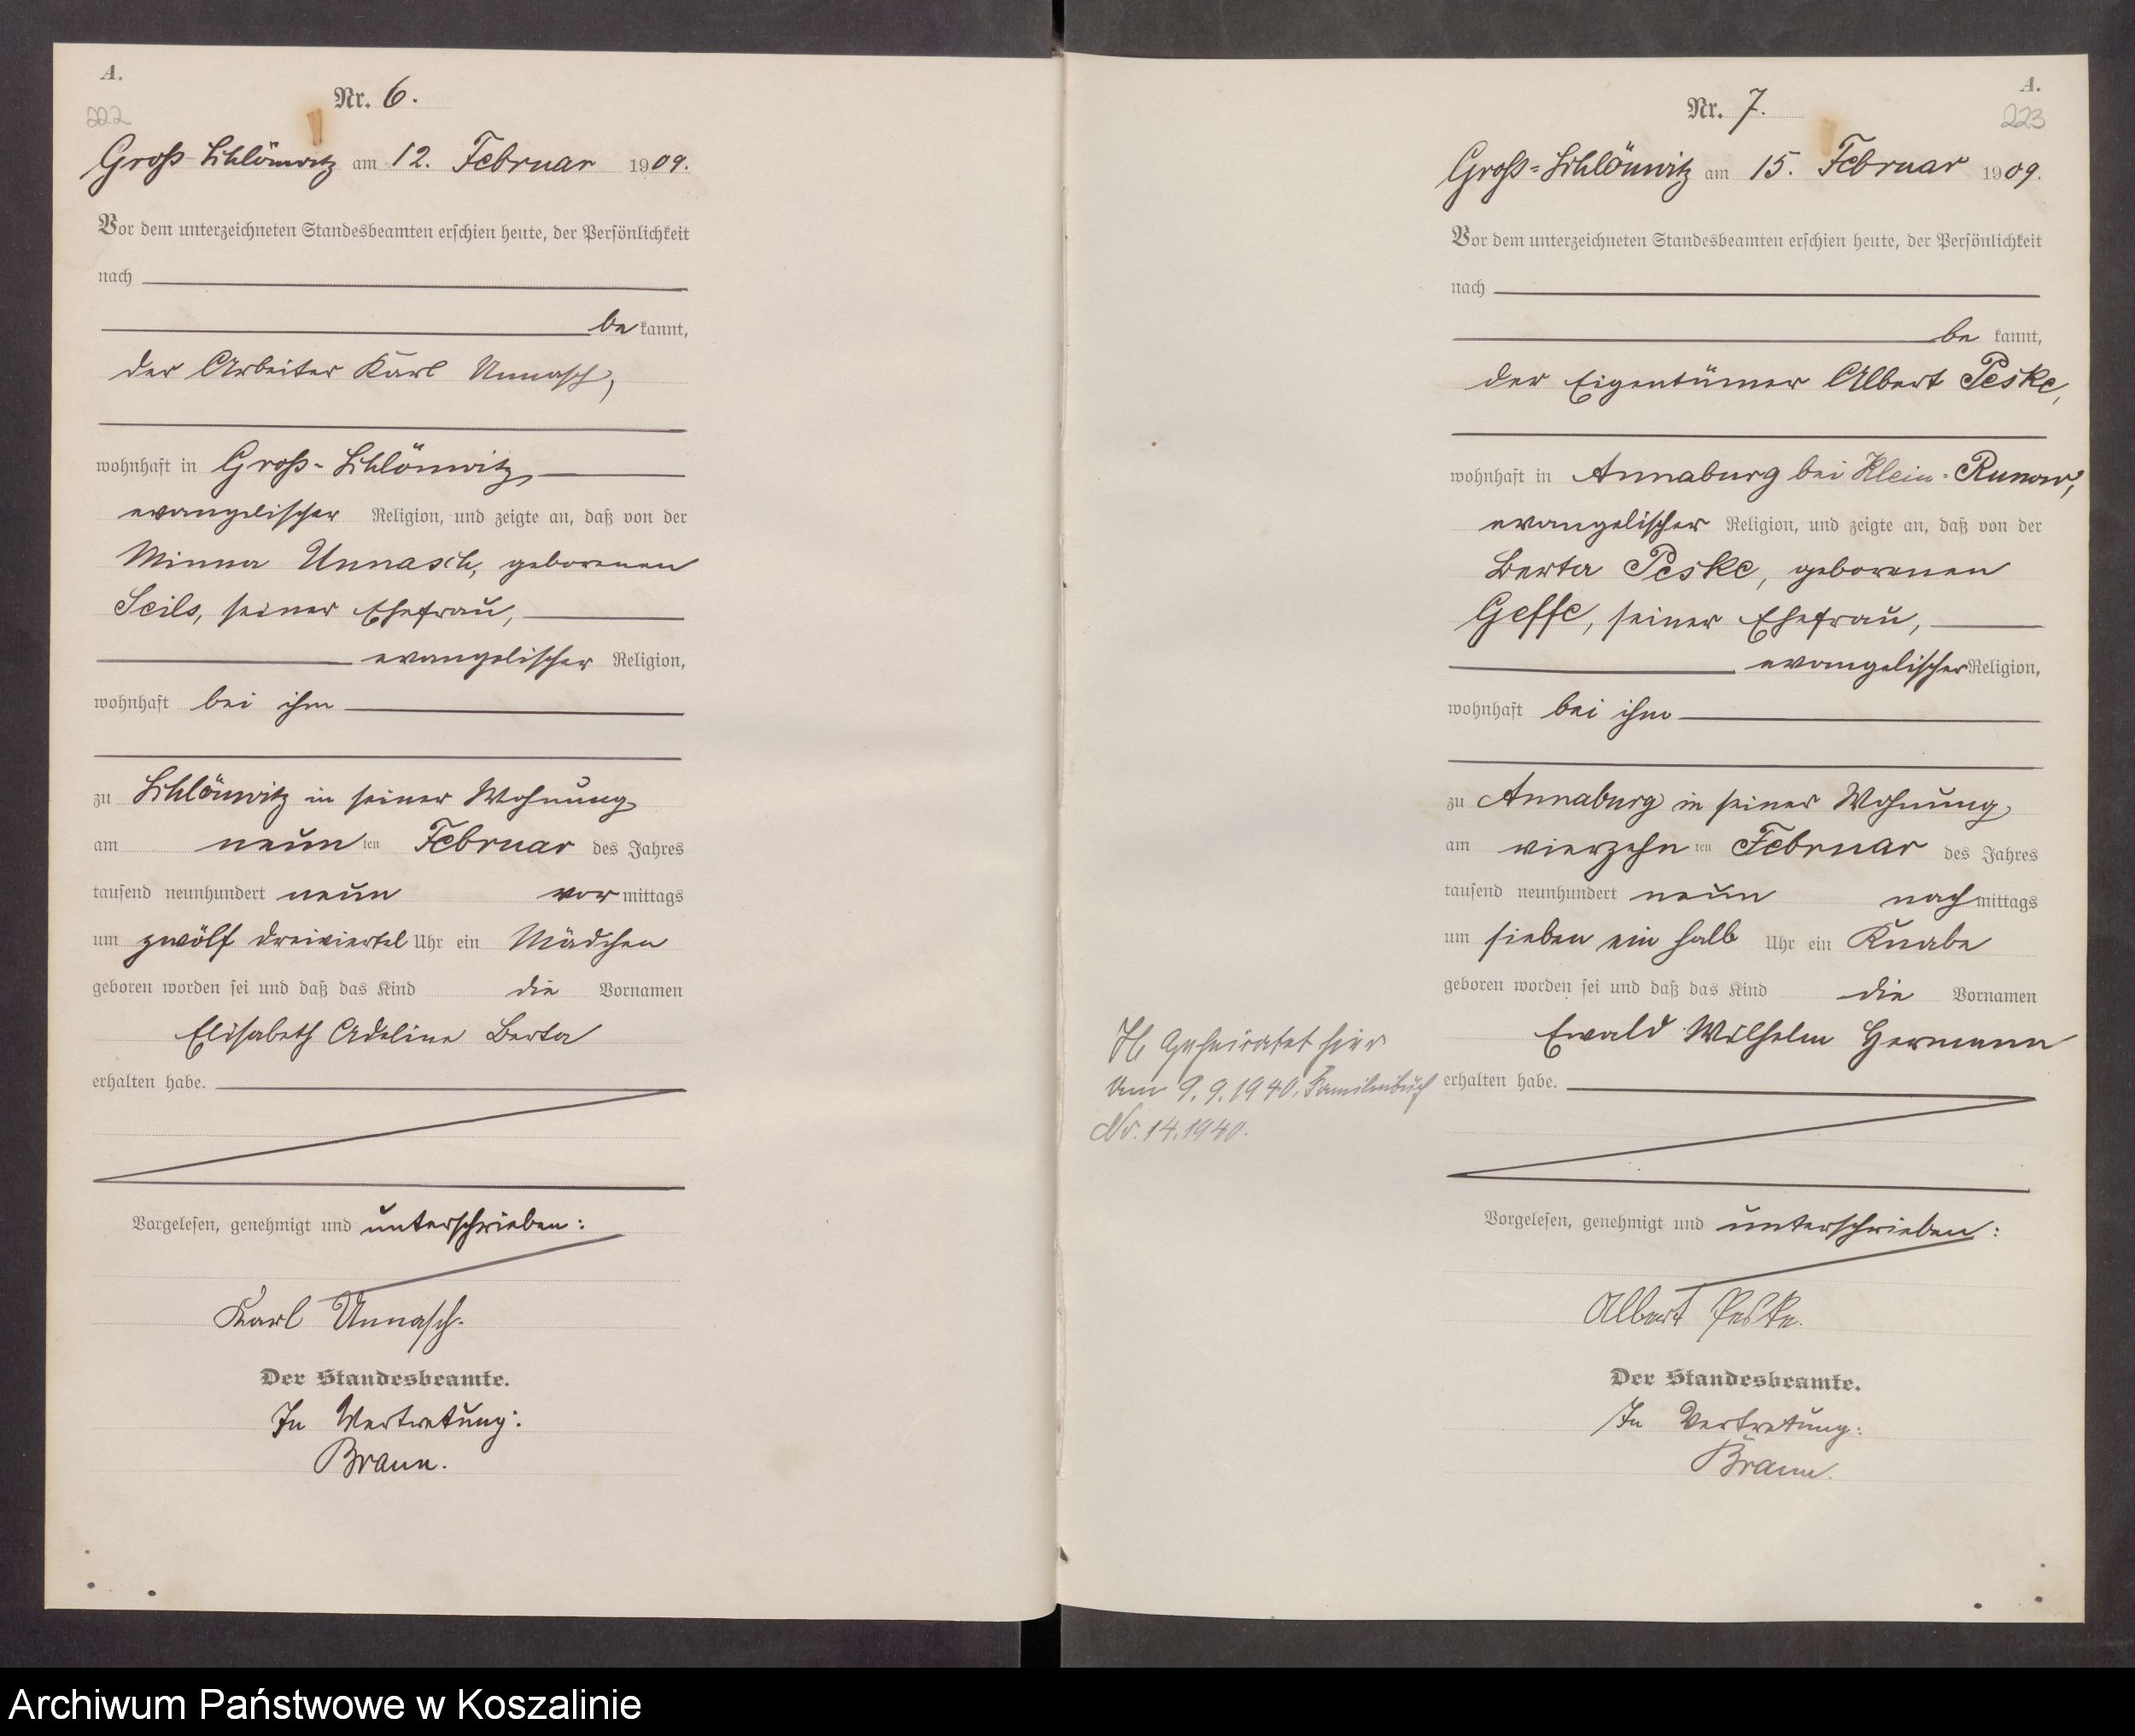 A.
222
Nr. 6.
Groß-Schlönwitz am 12. Februar 1909.
Vor dem unterzeichneten Standesbeamten erschien heute, der Persönlichkeit
nach
be kannt,
der Arbeiter Karl Unnasch,
wohnhaft in Groß-Schlönwitz,
evangelischer Religion, und zeigte an, daß von der
Minna Unnasch, geborenen
Seils, seiner Ehefrau,
evangelischer Religion,
wohnhaft bei ihm
zu Schlönwitz in seiner Wohnung
am neun ten Februar des Jahres
tausend neunhundert neun vor mittags
um zwölf dreiviertel Uhr ein Mädchen
geboren worden sei und daß das Kind die Vornamen
Elisabeth Adeline Berta
erhalten habe.
Vorgelesen, genehmigt und unterschrieben:
Karl Unnasch.
Der Standesbeamte.
In Vertretung:
Braun.
A.
223
Nr. 7.
Groß-Schlönwitz am 15. Februar 1909.
Vor dem unterzeichneten Standesbeamten erschien heute, der Persönlichkeit
nach
be kannt,
der Eigentümer Albert Peske,
wohnhaft in Annaburg bei Klein-Runow,
evangelischer Religion, und zeigte an, daß von der
Berta Peske, geborenen
Geffe, seiner Ehefrau,
evangelischer Religion,
wohnhaft bei ihm
zu Annaburg in seiner Wohnung
am vierzehn ten Februar des Jahres
tausend neunhundert neun nach mittags
um sieben ein halb Uhr ein Knabe
geboren worden sei und daß das Kind die Vornamen
Ewald Wilhelm Hermann
erhalten habe.
Geheiratet hier
am 9.9.1940. Familienbuch
Nr. 14.1940.
Vorgelesen, genehmigt und unterschrieben:
Albert Peske.
Der Standesbeamte.
In Vertretung:
Braun.
Archiwum Państwowe w Koszalinie